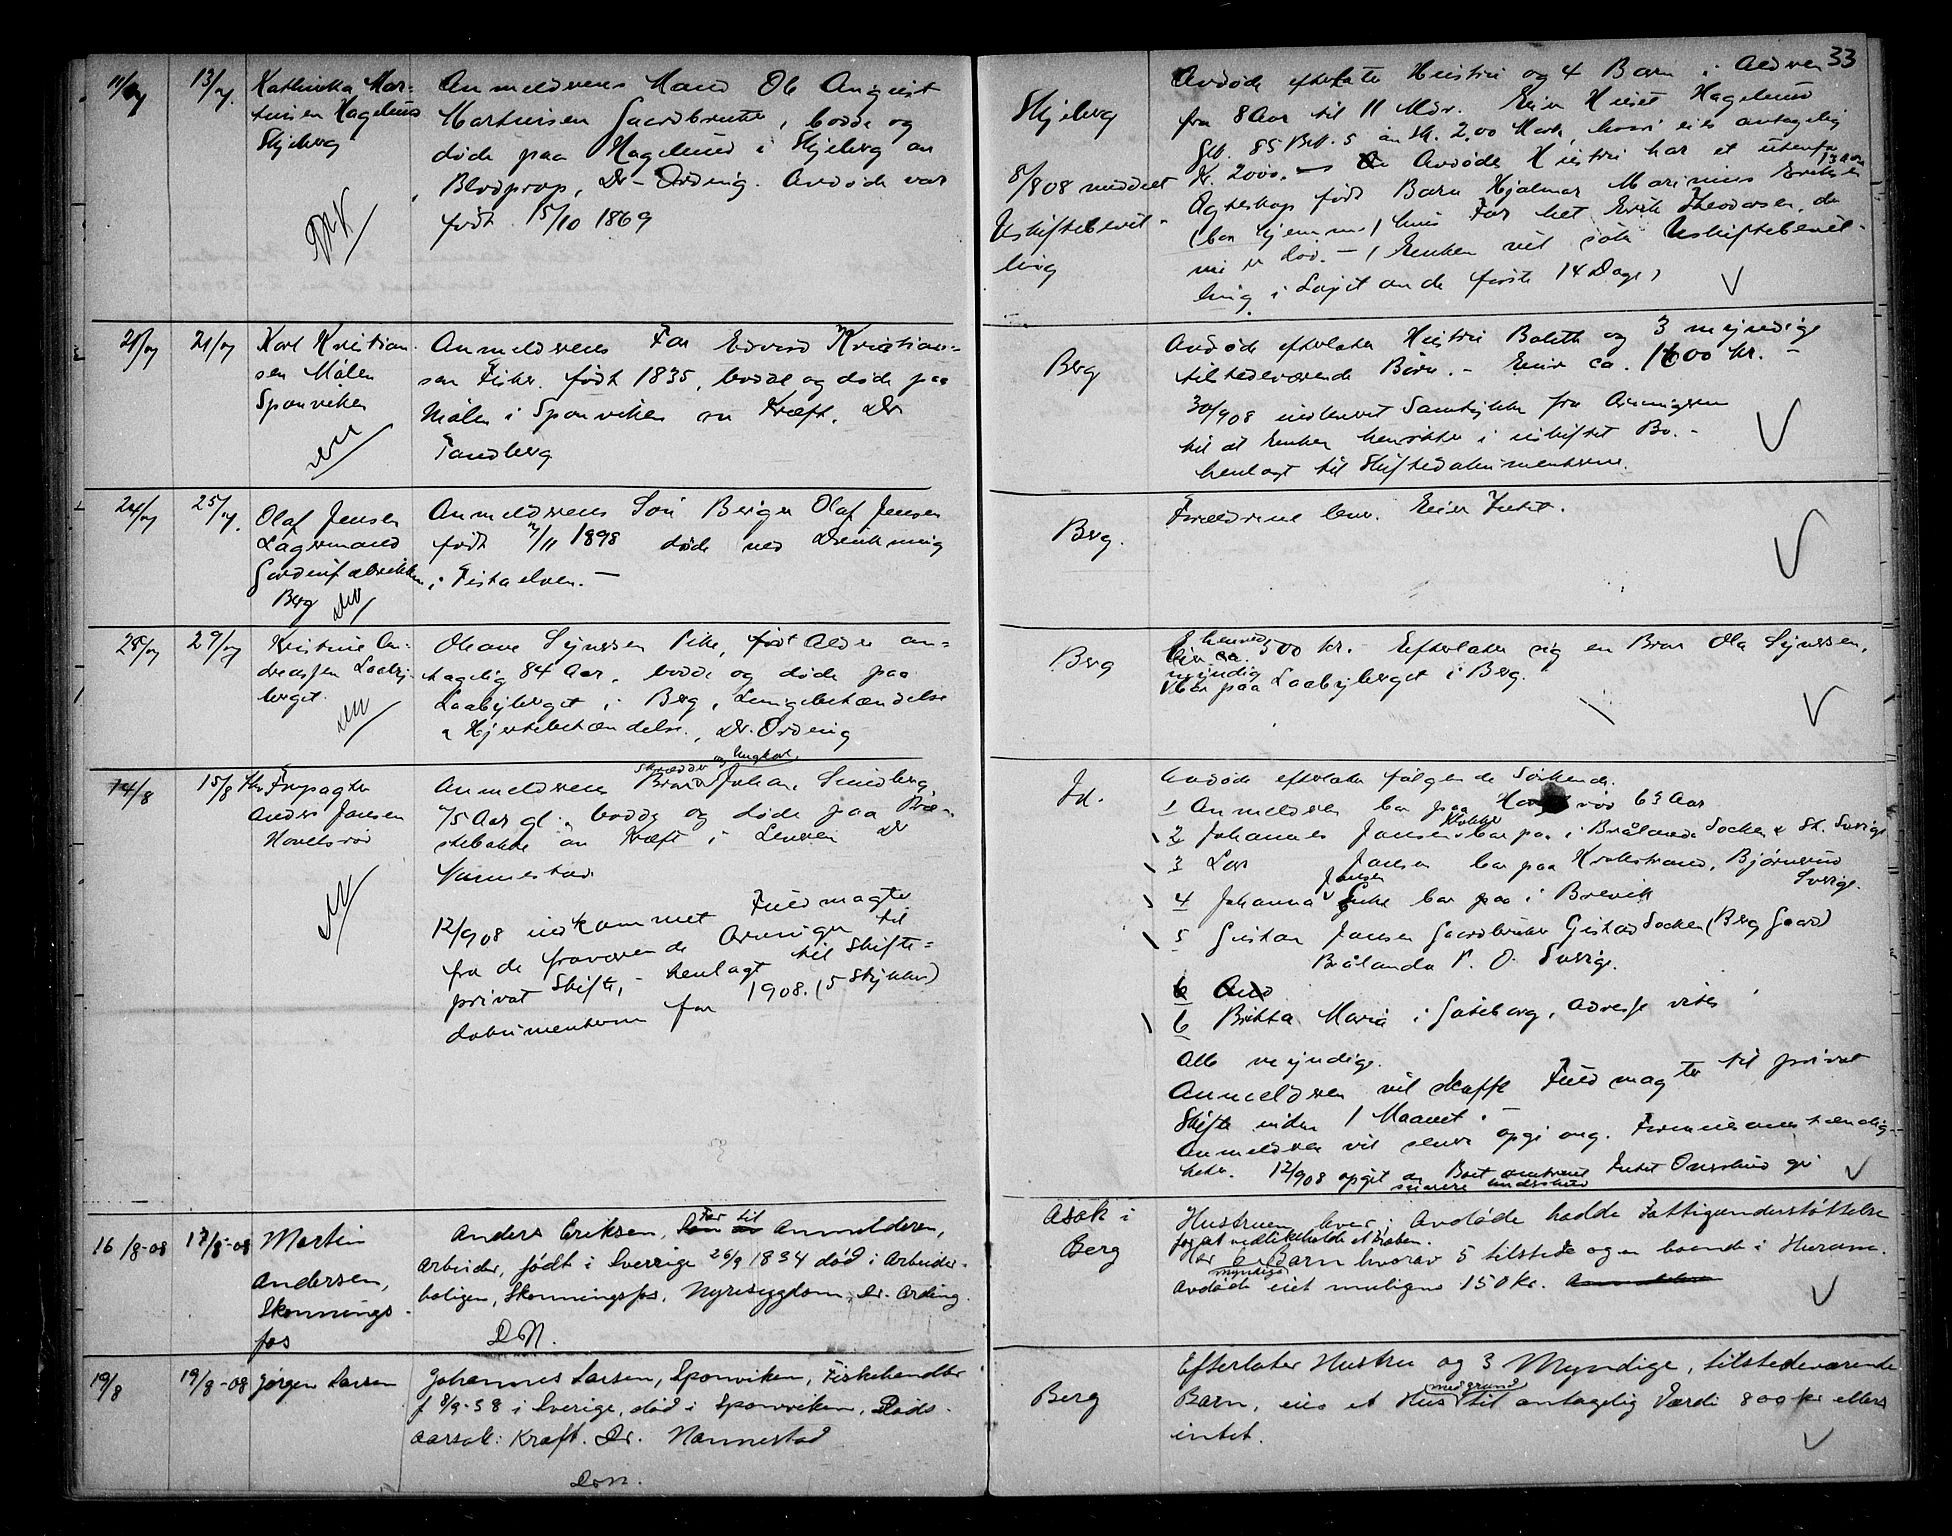 33
11/7 13/7
Kathinka Mar-
tinsen Hagelund
Skjeberg
Anmelderens Mand Ole August
Martinsen Gaardbruker, bodde og
døde paa Hagelund i Skjeberg av
Blodprop, Dr. Ording. Avdøde var
født 15/10 1869
Skjeberg
8/8 08 meddelt
Uskiftebevil-
ling
Avdøde efterlater Hustru og 4 Barn i Alderen
fra 8 Aar til 11 Mdr. Eier Huset Hagelund
Gb. 85 Bd. 5 av Sk. 2,00 Mark, hvori eies antagelig
Kr. 2000. — Avdødes Hustru har et utenfor
Ægteskap født Barn Hjalmar Marinius Eriksen 13 Aar
(bor hjemme) hvis Far het Erik Theodorsen, der
nu er død. — Enken vil søke Uskiftebevil-
ling i Løpet av de første 14 Dage
21/7 21/7
Karl Kristian-
sen Mølen
Sponviken
Anmelderens Far Edvard Kristian-
sen Fisker. født 1835, bodde og døde paa
Mølen i Sponviken av Kræft. Dr
Tandberg
Berg
Avdøde efterlater Hustru Bolette og 3 myndige
tilstedeværende Børn. - Eier ca. 1600 kr. -
30/9 08 indlevert Samtykke fra Arvingerne
til at Enken hensitter i uskiftet Bo. -
henlagt til Skiftedokumenterne.
24/7 25/7
Olaf Jensen
Lagermand
Gardinfabrikken
Berg
Anmelderens Søn Birger Olaf Jensen
født 7/11 1898 døde ved Drukning
i Tistaelven. —
Berg.
Forældrene lever. Eier Intet.
28/7 29/7
Kristine An-
dreassen Laaby-
berget
Oleane Synessen Pike, Alder an-
tagelig 84 Aar, bodde og døde paa
Laabyberget i Berg, Lungebetændelse
& Hjertebetændelse, Dr. Ording
Berg
Eier henved 500 kr. - Efterlater sig en Bror Ola Synessen,
myndig
bor paa Laabyberget i Berg.
14/8 15/8
Anders Jansen
Anmelderens Bror Johan Lindberg,
Skrædder og Ungkarl,
75 Aar gl., bodde og døde paa Præ-
stebakke av Kræft i Leveren Dr
Nannestad
12/9 08 indkommet Fuldmagter
fra de fraværende Arvinger til
privat Skifte, - henlagt til Skifte-
dokumenterne for 1908. (5 Stykker)
Id.
Avdøde efterlater følgende Søskende.
1 Anmelderen bor paa 63 Aar
2 Johannes Jansen Klokker bor paa i Brålanda Socken Sverige
3 Lars Jansen bor paa Krokstrand, Bjørnerud
Sverige.
4 Johanna Jansen Enke bor paa i Brevik
5 Gustav Jansen Gaardbruker Gestad Socken (Berg Gaard)
Brålanda P. O. Sverige.
6 And
6 Britta Maria i Gøteborg, Adresse vites
Alle myndige.
Anmelderen vil skaffe Fuldmagter til privat
Skifte inden 1 Maanet. —
Anmelderen vil senere opgi ang. Formuesomstændig-
heter. 12/9 08 opgit av Boet Intet Overskud gir
snarere Underskud
16/8-08 17/8-08
Martin
Andersen,
Skonnings-
fos
Anders Eriksen, Far til Anmelderen,
Arbeider, født i Sverrige 26/9 1834 død i Arbeider-
boligen, Skonningsfos, Nyresygdom, Dr. Ording.
Asak i
Berg
Hustruen lever, Avdøde hadde Fattigunderstøttelse
for at vedlikeholde
Har 6 myndige Barn hvorav 5 tilstede og en boende i Hurum.
Avdøde eiet muligens 150 kr.
19/8 19/8-08
Jørgen Larsen
Johannes Larsen, Sponviken, Fiskehandler
f 8/9-38 i Sverige, død i Sponviken, Døds-
aarsak: Kræft. Dr. Nannestad
Berg
Efterlater Hustru og 3 Myndige, tilstedeværende
Barn, eies et Hus med grund til antagelig Værdi 800 kr ellers
intet.